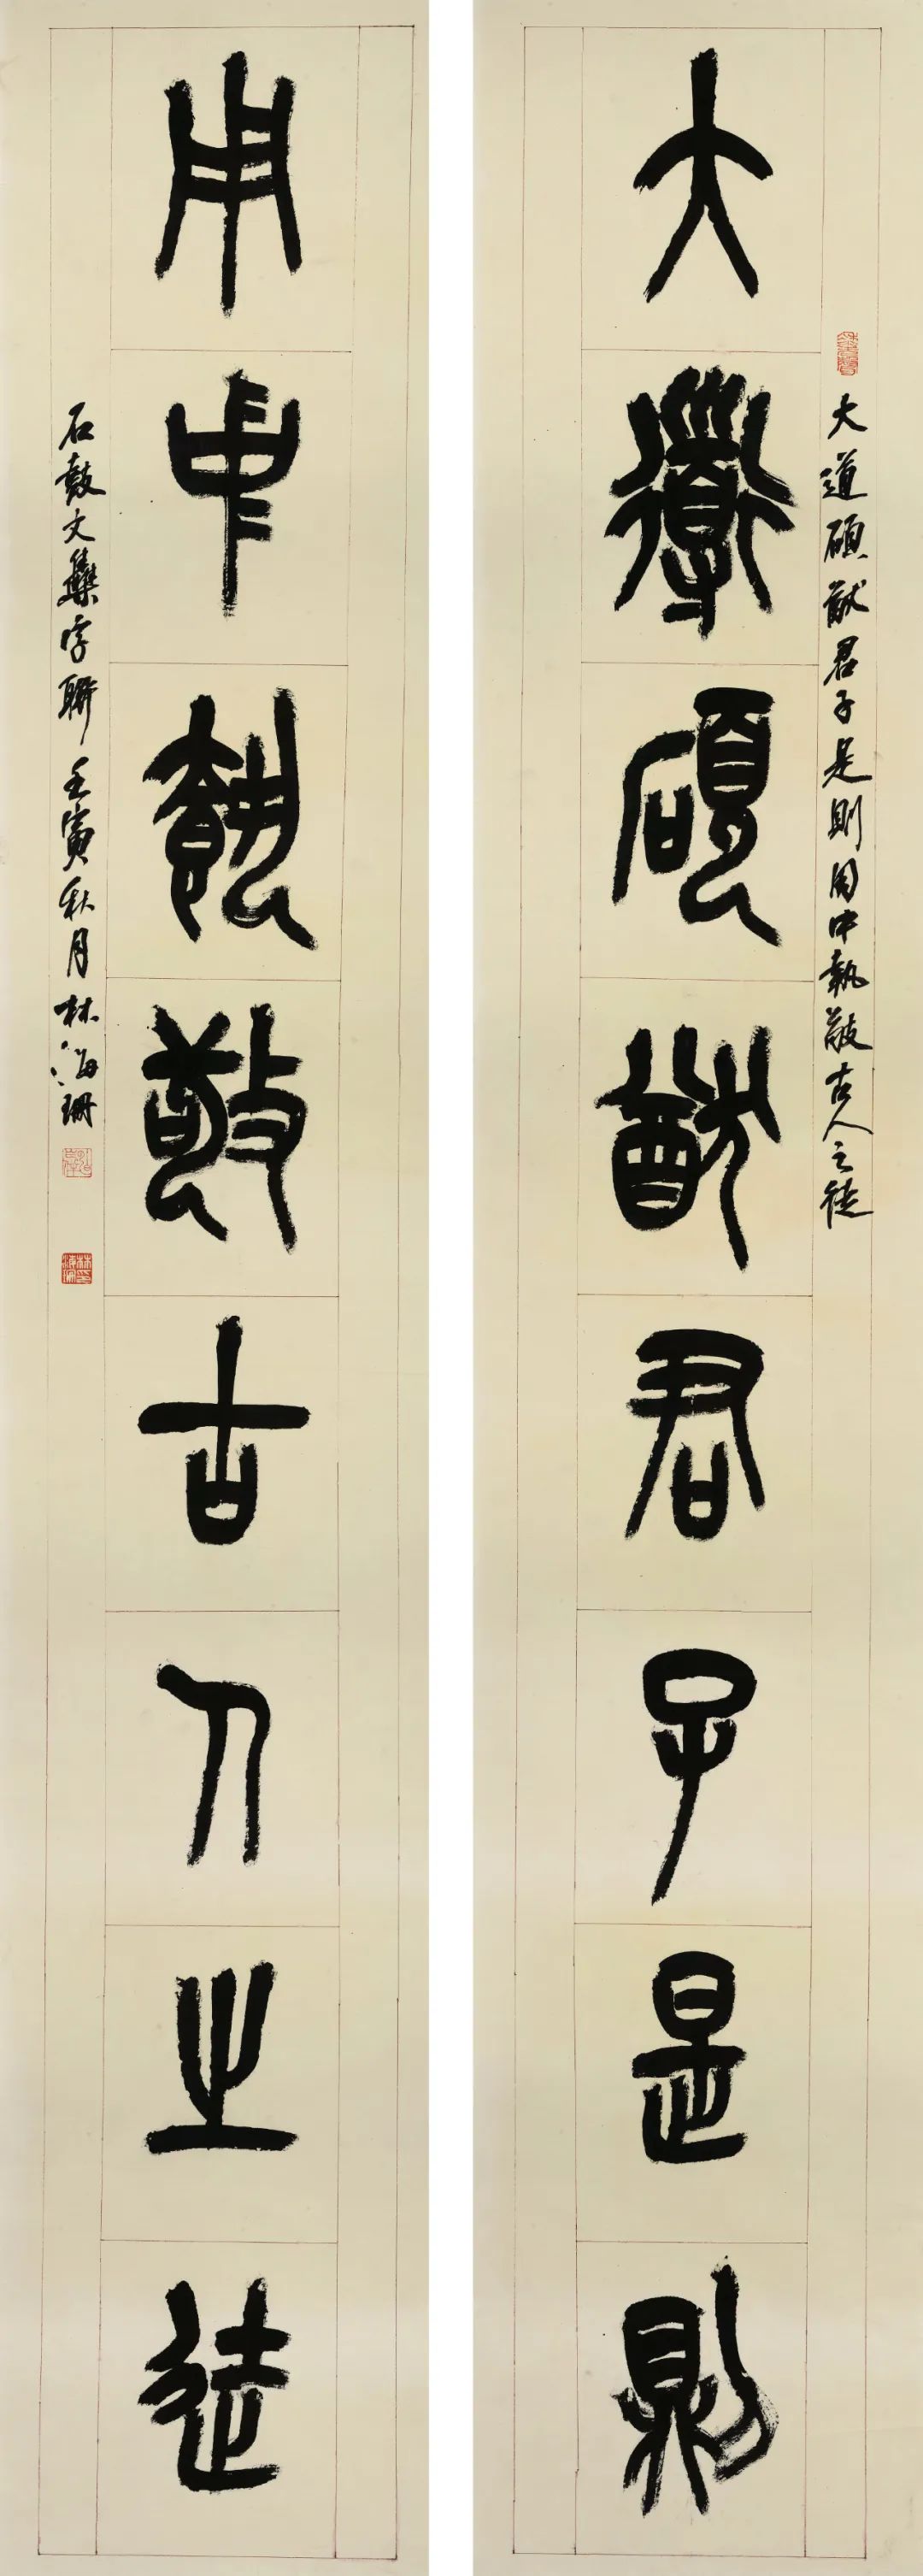 大道碩猷君子是則
用中執敬古人之徒
大道碩猷君子是則用中執敬古人之徒
石鼓文集字聯壬寅秋月林海珊